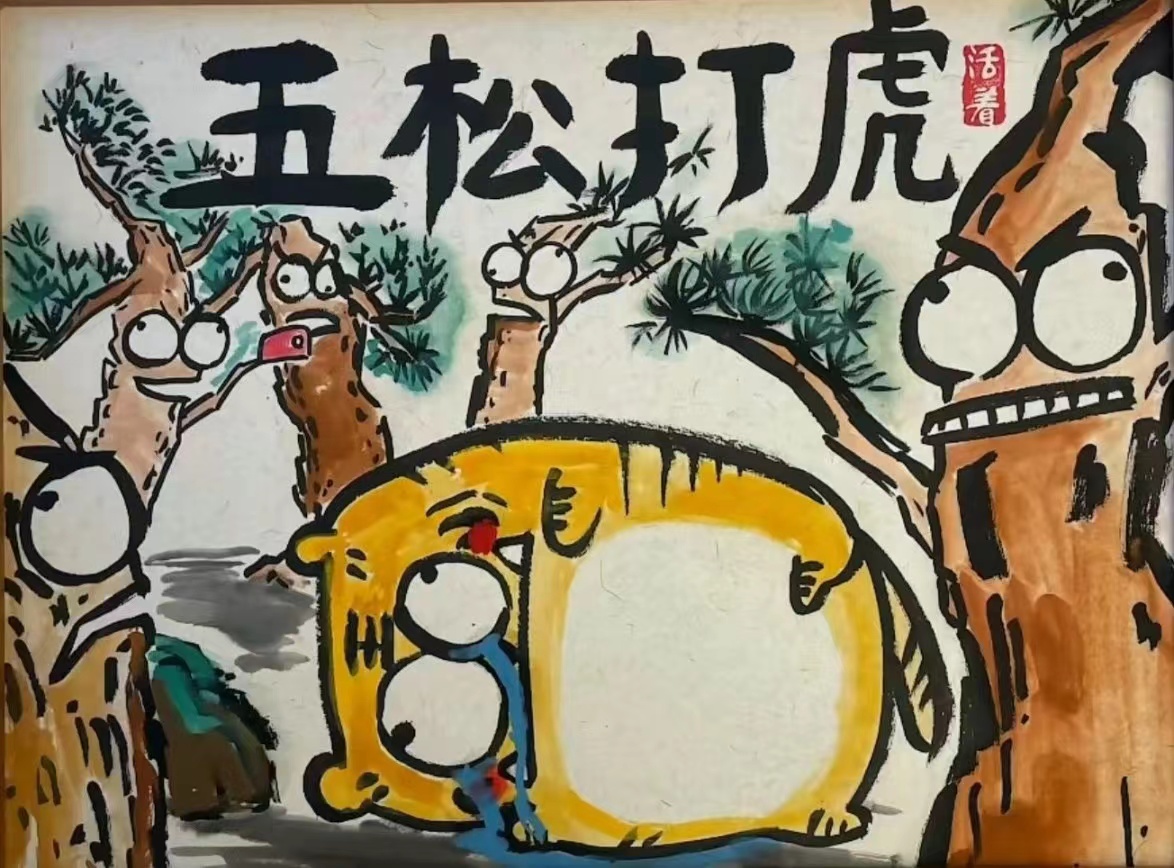 五松打虎
活着